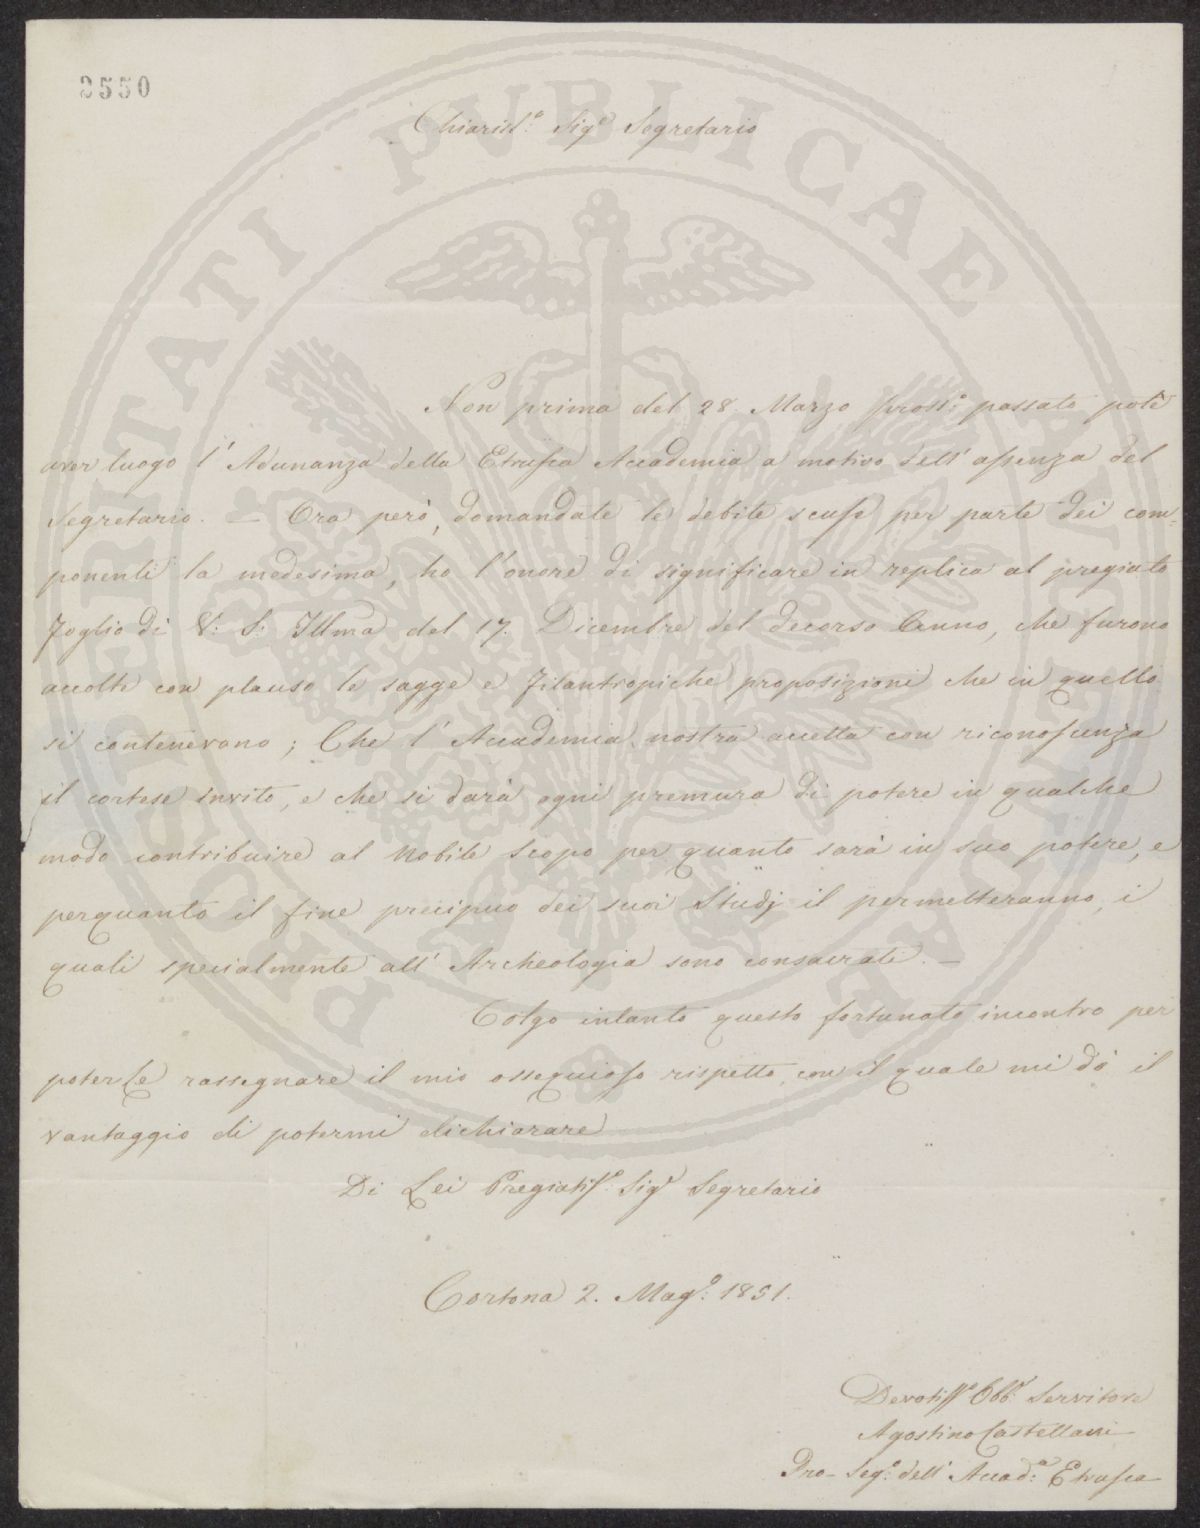 2550
Chiaris.º Sig.e Segretario
Non prima del 28. Marzo pross.º passato potè
aver luogo l' Adunanza della Etrusca Accademia a motivo dell' assenza del
Segretario. — Ora però, domandate le debite scuse per parte dei com=
ponenti la medesima, ho l'onore di significare in replica al pregiato
foglio di V: S: Illma del 17. Dicembre del decorso Anno, che furono
accolte con plauso le sagge e filantropiche proposizioni che in quello
si contenevano; Che l' Accademia nostra accetta con riconoscenza
il cortese invito, e che si darà ogni premura di potere in qualche
modo contribuire al nobile scopo per quanto sarà in suo potere, e
perquanto il fine precipuo dei suoi Studj il permetteranno, i
quali specialmente all' Archeologia sono consacrati. —
Colgo intanto questo fortunato incontro per
poterLe rassegnare il mio ossequioso rispetto, con il quale mi dò il
vantaggio di potermi dichiarare
Di Lei Pregiatis.º Sig.e Segretario
Cortona 2. Mag.º 1851.
Devotiss.º Obb.º Servitore
Agostino Castellani
Pro-Seg.º dell' Accad.ª Etrusca
PROSPERITATI PVBLICAE AVGENDAE